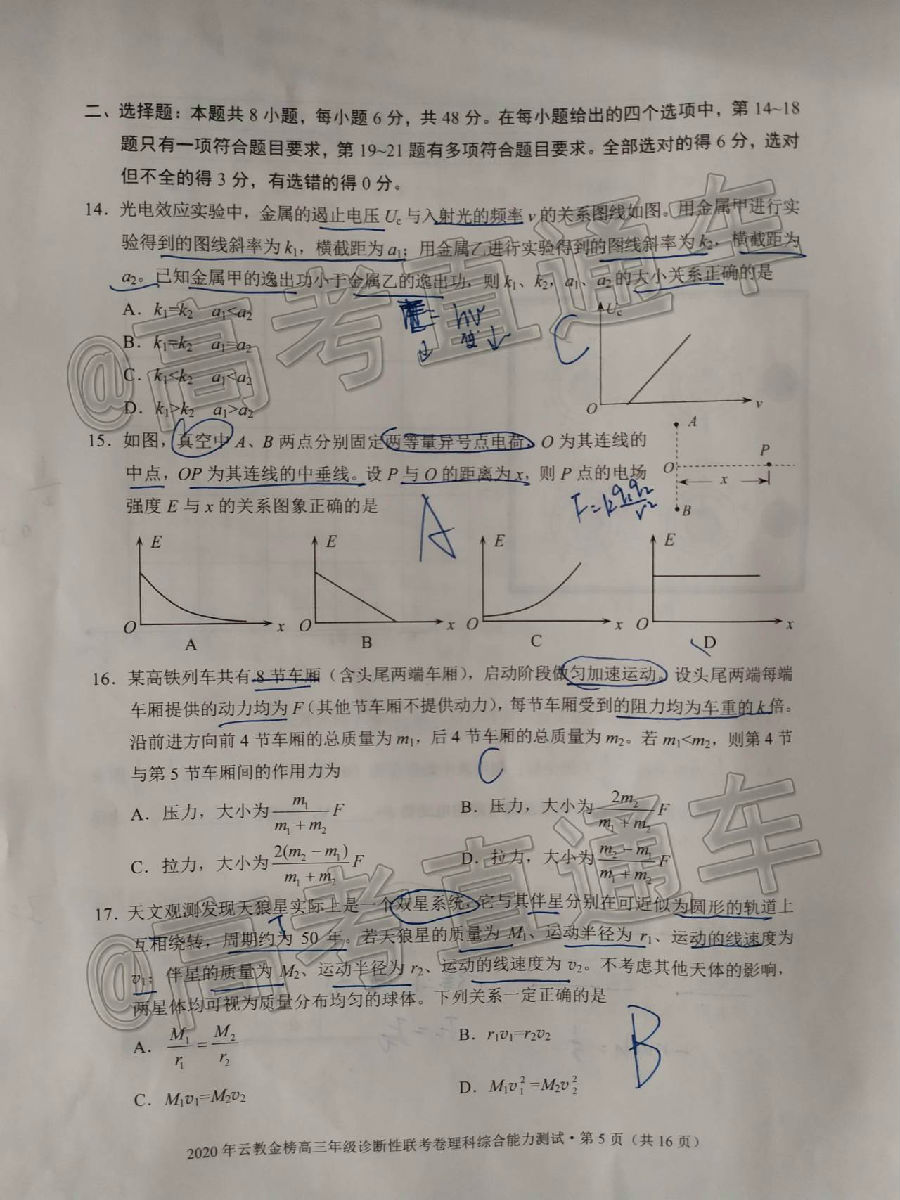 二、选择题：本题共 8 小题，每小题 6 分，共 48 分。在每小题给出的四个选项中，第 14~18
题只有一项符合题目要求，第 19~21 题有多项符合题目要求。全部选对的得 6 分，选对
但不全的得 3 分，有选错的得 0 分。
14．光电效应实验中，金属的遏止电压 Uc 与入射光的频率 ν 的关系图线如图。用金属甲进行实
验得到的图线斜率为 k₁，横截距为 a₁；用金属乙进行实验得到的图线斜率为 k₂，横截距为
a₂。已知金属甲的逸出功小于金属乙的逸出功，则 k₁、k₂，a₁、a₂ 的大小关系正确的是
A．k₁=k₂ a₁<a₂
B．k₁=k₂ a₁=a₂
C．k₁<k₂ a₁<a₂
D．k₁>k₂ a₁>a₂
= hν
C
Uc
O ν
15．如图，真空中 A、B 两点分别固定两等量异号点电荷，O 为其连线的
中点，OP 为其连线的中垂线。设 P 与 O 的距离为 x，则 P 点的电场
强度 E 与 x 的关系图象正确的是
A
F=k q₁q₂/r²
A
O P
x
B
E E E E
O x O x O x O x
A B C D
16．某高铁列车共有 8 节车厢（含头尾两端车厢），启动阶段做匀加速运动。设头尾两端每端
车厢提供的动力均为 F（其他节车厢不提供动力），每节车厢受到的阻力均为车重的 k 倍。
沿前进方向前 4 节车厢的总质量为 m₁，后 4 节车厢的总质量为 m₂。若 m₁<m₂，则第 4 节
与第 5 节车厢间的作用力为
C
A．压力，大小为 m₁/(m₁+m₂) F B．压力，大小为 2m₂/(m₁+m₂) F
C．拉力，大小为 2(m₂−m₁)/(m₁+m₂) F D．拉力，大小为 (m₂−m₁)/(m₁+m₂) F
17．天文观测发现天狼星实际上是一个双星系统，它与其伴星分别在可近似为圆形的轨道上
T
互相绕转，周期约为 50 年。若天狼星的质量为 M₁、运动半径为 r₁、运动的线速度为
v₁；伴星的质量为 M₂、运动半径为 r₂、运动的线速度为 v₂。不考虑其他天体的影响，
两星体均可视为质量分布均匀的球体。下列关系一定正确的是
A．M₁/r₁=M₂/r₂ B．r₁v₁=r₂v₂
B
C．M₁v₁=M₂v₂ D．M₁v₁²=M₂v₂²
2020 年云教金榜高三年级诊断性联考卷理科综合能力测试·第 5 页（共 16 页）
@高考直通车
@高考直通车